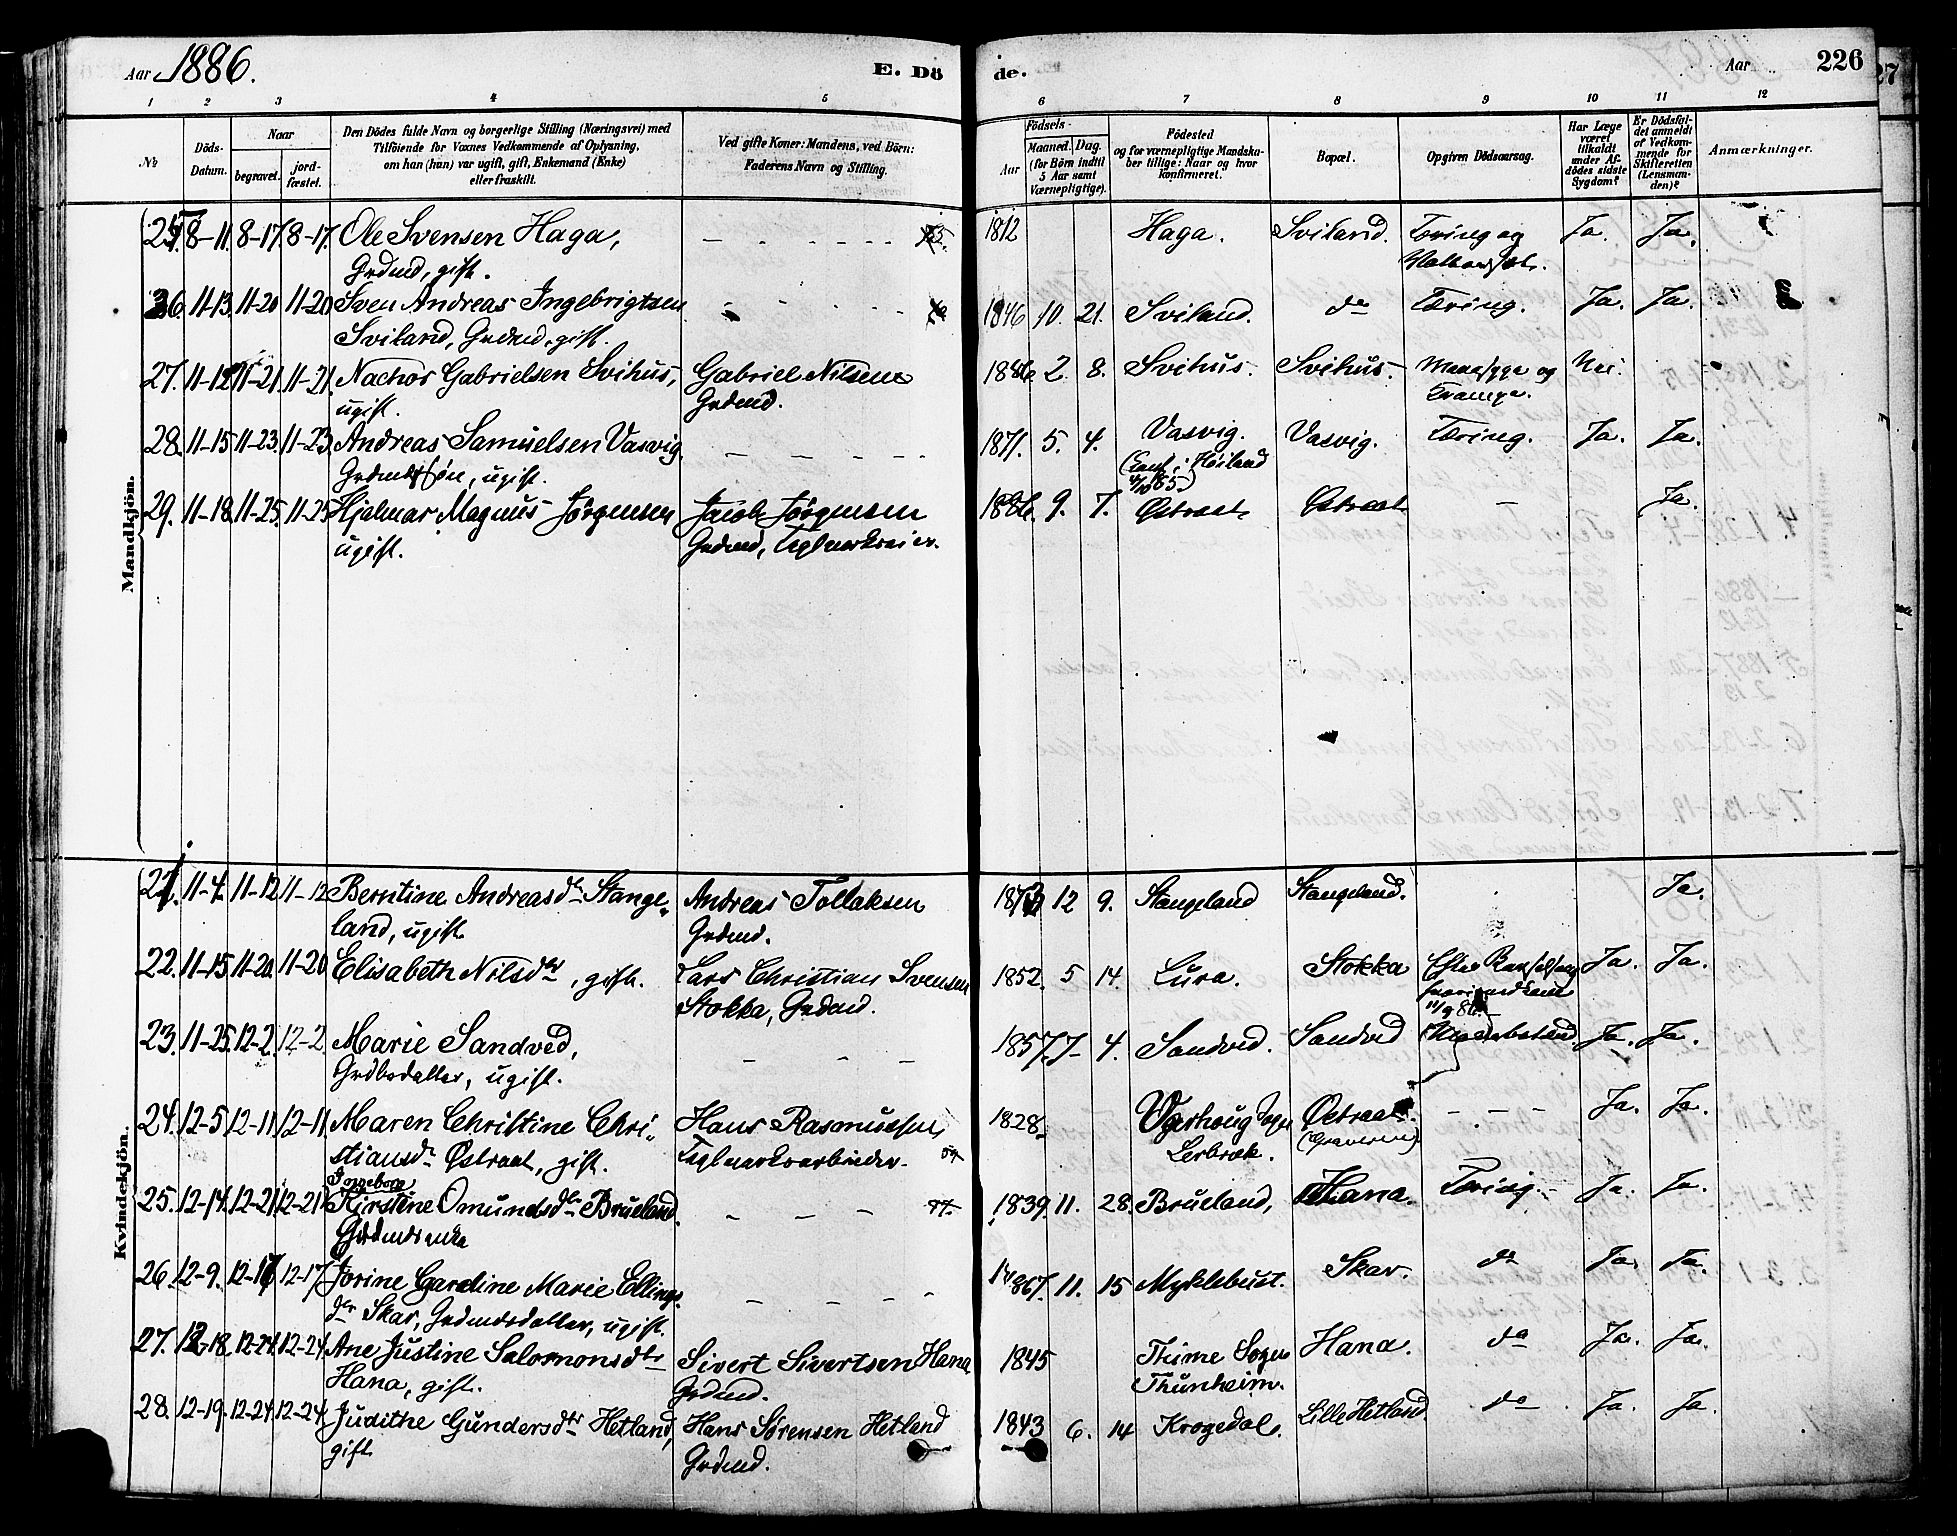 Aar 1886.
E. Dö
de.
Aar
226
1 2 3 4 5 6 7 8 9 10 11 12
№
Döds-
Datum.
Naar
begravet.
jord-
fæstet.
Den Dödes fulde Navn og borgerlige Stilling (Næringsvei) med
Tilföiende for Voxnes Vedkommende af Oplysning,
om han (hun) var ugift, gift, Enkemand (Enke)
eller fraskilt.
Ved gifte Koner: Mandens, ved Börn:
Faderens Navn og Stilling.
Födsels-
Aar
Maaned. Dag.
(for Börn indtil
5 Aar samt
Værnepligtige).
Födested
og for værnepligtige Mandska-
ber tillige: Naar og hvor
konfirmeret.
Bopæl.
Opgiven Dödsaarsag.
Har Læge
været
tilkaldt
under Af-
dödes sidste
Sygdom?
Er Dödsfal-
det anmeldt
af Vedkom-
mende for
Skifteretten
(Lensman-
den)?
Anmærkninger.
Mandkjön.
25. 8-11 8-17 8-17. Ole Svensen Haga, 1812 Haga. Sviland. Tæring og Ja. Ja.
Grdmd, gift.
26. 11-13. 11-20 11-20 Sven Andreas Ingebrigtsen 1846 10. 21. Sviland. do Tæring. Ja. Ja.
Sviland, Grdmd, gift.
27. 11-12 11-21. 11-21. Nachor Gabrielsen Svihus, Gabriel Nilsen 1886. 2. 8. Svihus. Svihus. og Nei.
ugift. Grdmd. Krampe.
28. 11-15 11-23. 11-23. Andreas Samuelsen Vasvig. 1871. 5. 4. Vasvig. Vasvig. Tæring. Ja. Ja.
Grdmdssøn, ugift. (Konf. i Høiland
85)
29. 11-18. 11-25. 11-25 Hjalmar Magnus Jørgensen Jacob Jørgensen 1886. 9. 7. Østraat. Østraat. - Ja.
ugift. Grdmd, Teglværkseier.
Kvindekjön.
21. 11-4. 11-12 11-12 Berntine Andreasdtr Stange- Andreas Tollaksen 1873 12 9. Stangeland Stangeland. Ja.
land, ugift. Grdmd.
22. 11-15. 11-20. 11-20 Elisabeth Nilsdtr, gift. Lars Christian Svensen 1852. 5 14. Lura. Stokka Efter Ja. Ja.
Stokka, Grdmd.
23. 11-25. 12-2. 12-2 Marie Sandved, 1857. 7 4. Sandved. Sandved Ja. Ja.
ugift.
24. 12-5 12-11 12-11. Maren Christine Chri- Hans Rasmussen, 1828. Varhoug Sogn Østraat. Ja. Ja.
stiansdr Østraat, gift. Teglværksarbeider. Lerbræk. (Graveren)
Ingeborg
25. 12-14. 12-21. 12-21. Kirstine Omundsdtr Brueland. 1839. 11. 28. Brueland, Hana. Tæring. Ja. Ja.
Grdmdsenke
26. 12-9. 12-17 12-17 Jorine Gardine Marie Ellings- 1867. 11. 15 Myklebust. Skar. do Ja. Ja.
dtr Skar, Grdmdsdatter, ugift.
27. 12-18. 12-24. 12-24. Ane Justine Salomonsdtr Sivert Sivertsen Hana 1845 Thime Sogn Hana. do Ja. Ja.
Hana, gift. Grdmd. Thunheim.
28. 12-19. 12-24. 12-24. Judithe Gundersdtr Hetland, Hans Sørensen Hetland 1843 6. 14 Krogedal. Lille Hetland do Ja. Ja.
gift Grdmd.